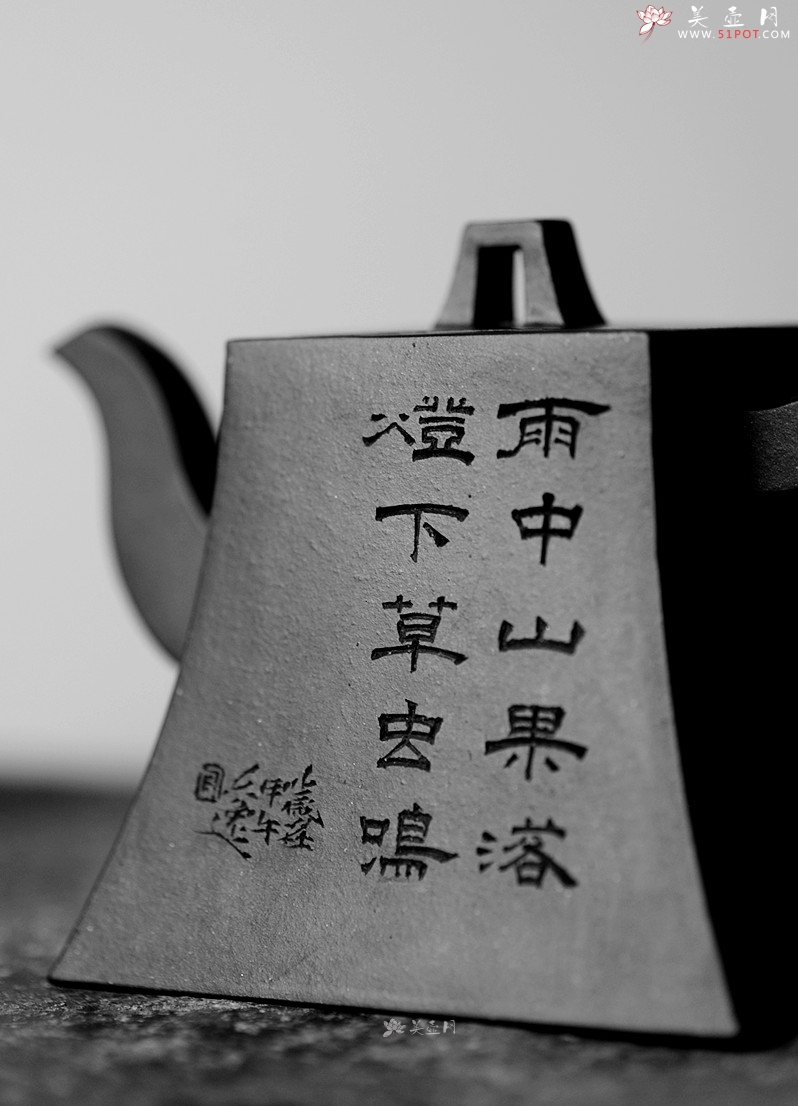 美壶网
WWW.51POT.COM
雨中山果落
燈下草虫鳴
甲午
美壶网